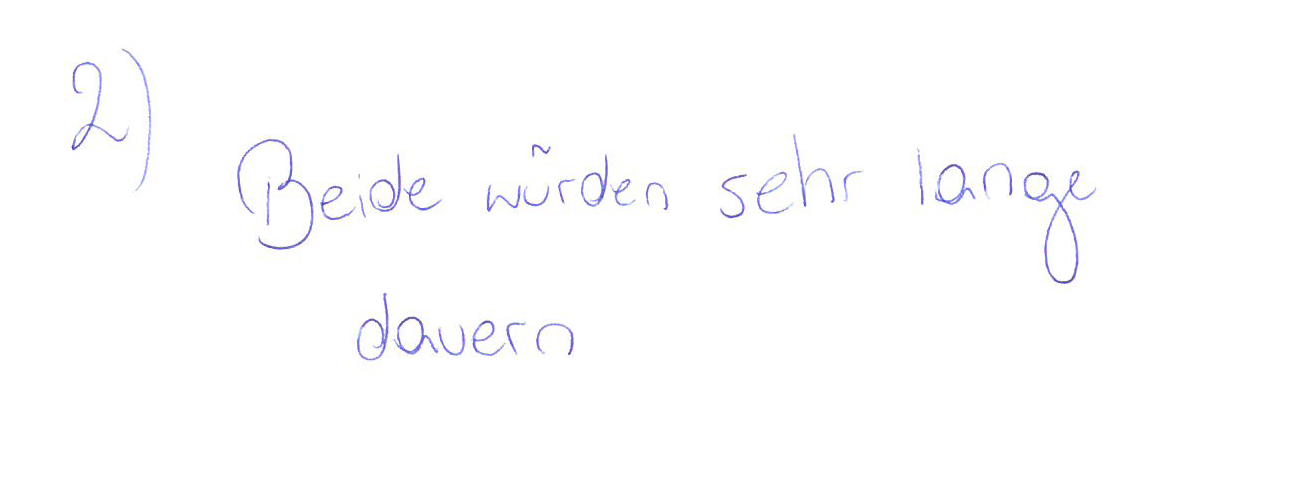 2)
Beide würden sehr lange
dauern